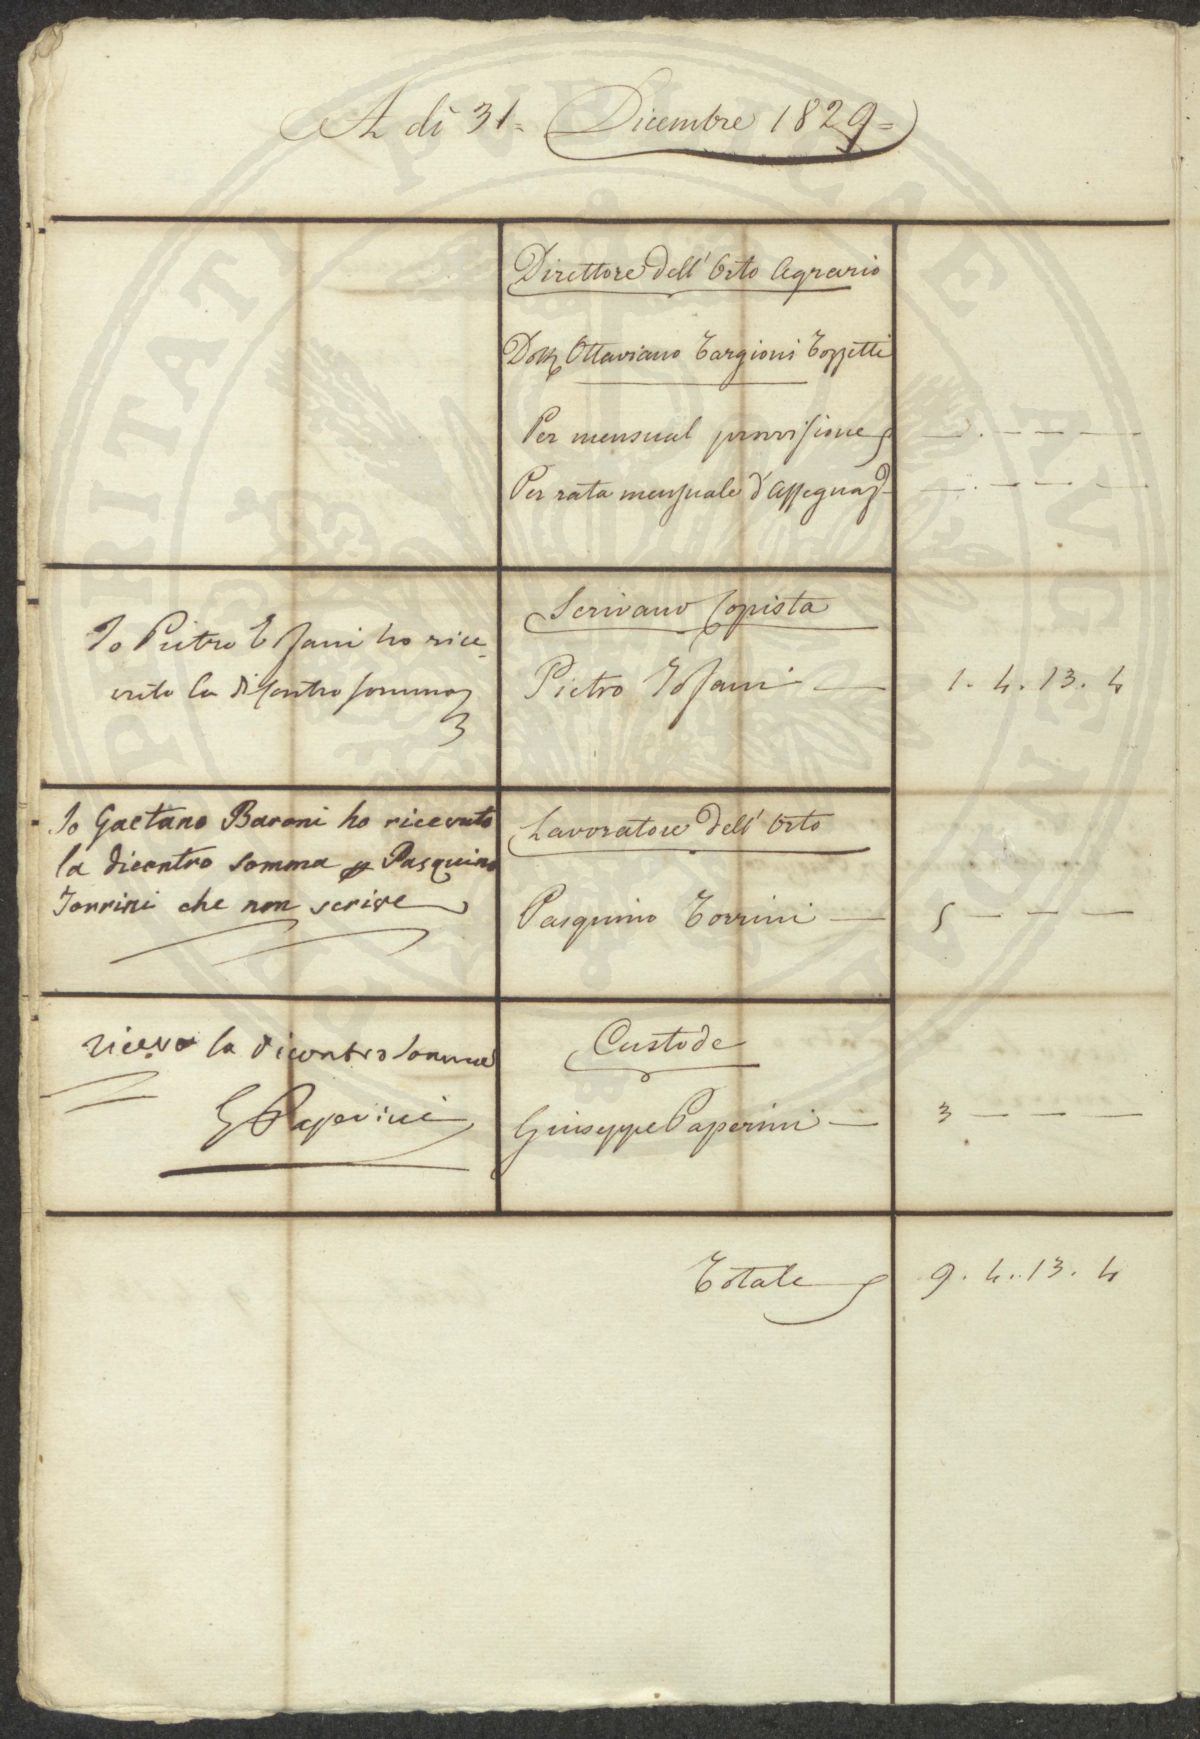 A dì 31= Dicembre 1829=
Direttore dell' Orto Agrario
Dott. Ottaviano Targioni Tozzetti
Per mensual provvisione — . — — —
Per rata mensuale d'assegnaz. — . — — —
Scrivano Copista
Io Pietro Tofani ho rice=
vuto la di contro somma
Pietro Tofani — 1. 4. 13. 4
Io Gaetano Baroni ho ricevuto
la dicontro somma p Pasquino
Torrini che non scrive
Lavoratore dell' Orto
Pasquino Torrini — 5 — — —
ricevo la dicontro somma
G Paperini
Custode
Giuseppe Paperini — 3 — — —
Totale 9. 4. 13. 4
PIETATI PVBLICAE